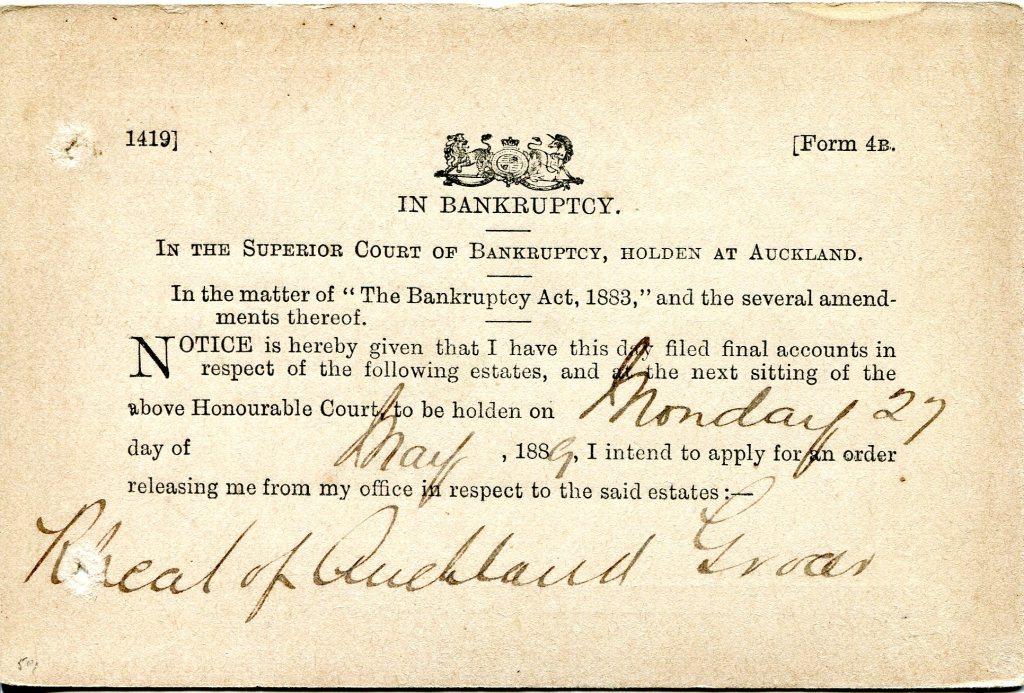 1419]
[Form 4B.
IN BANKRUPTCY.
IN THE SUPERIOR COURT OF BANKRUPTCY, HOLDEN AT AUCKLAND.
In the matter of "The Bankruptcy Act, 1883," and the several amend-
ments thereof.
NOTICE is hereby given that I have this day filed final accounts in
respect of the following estates, and at the next sitting of the
above Honourable Court, to be holden on Monday 27
day of May, 1889, I intend to apply for an order
releasing me from my office in respect to the said estates:—
of Auckland Grocer